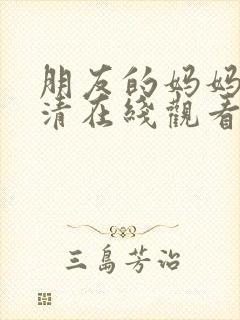 朋友的妈妈
清在綫觀看
三島芳治